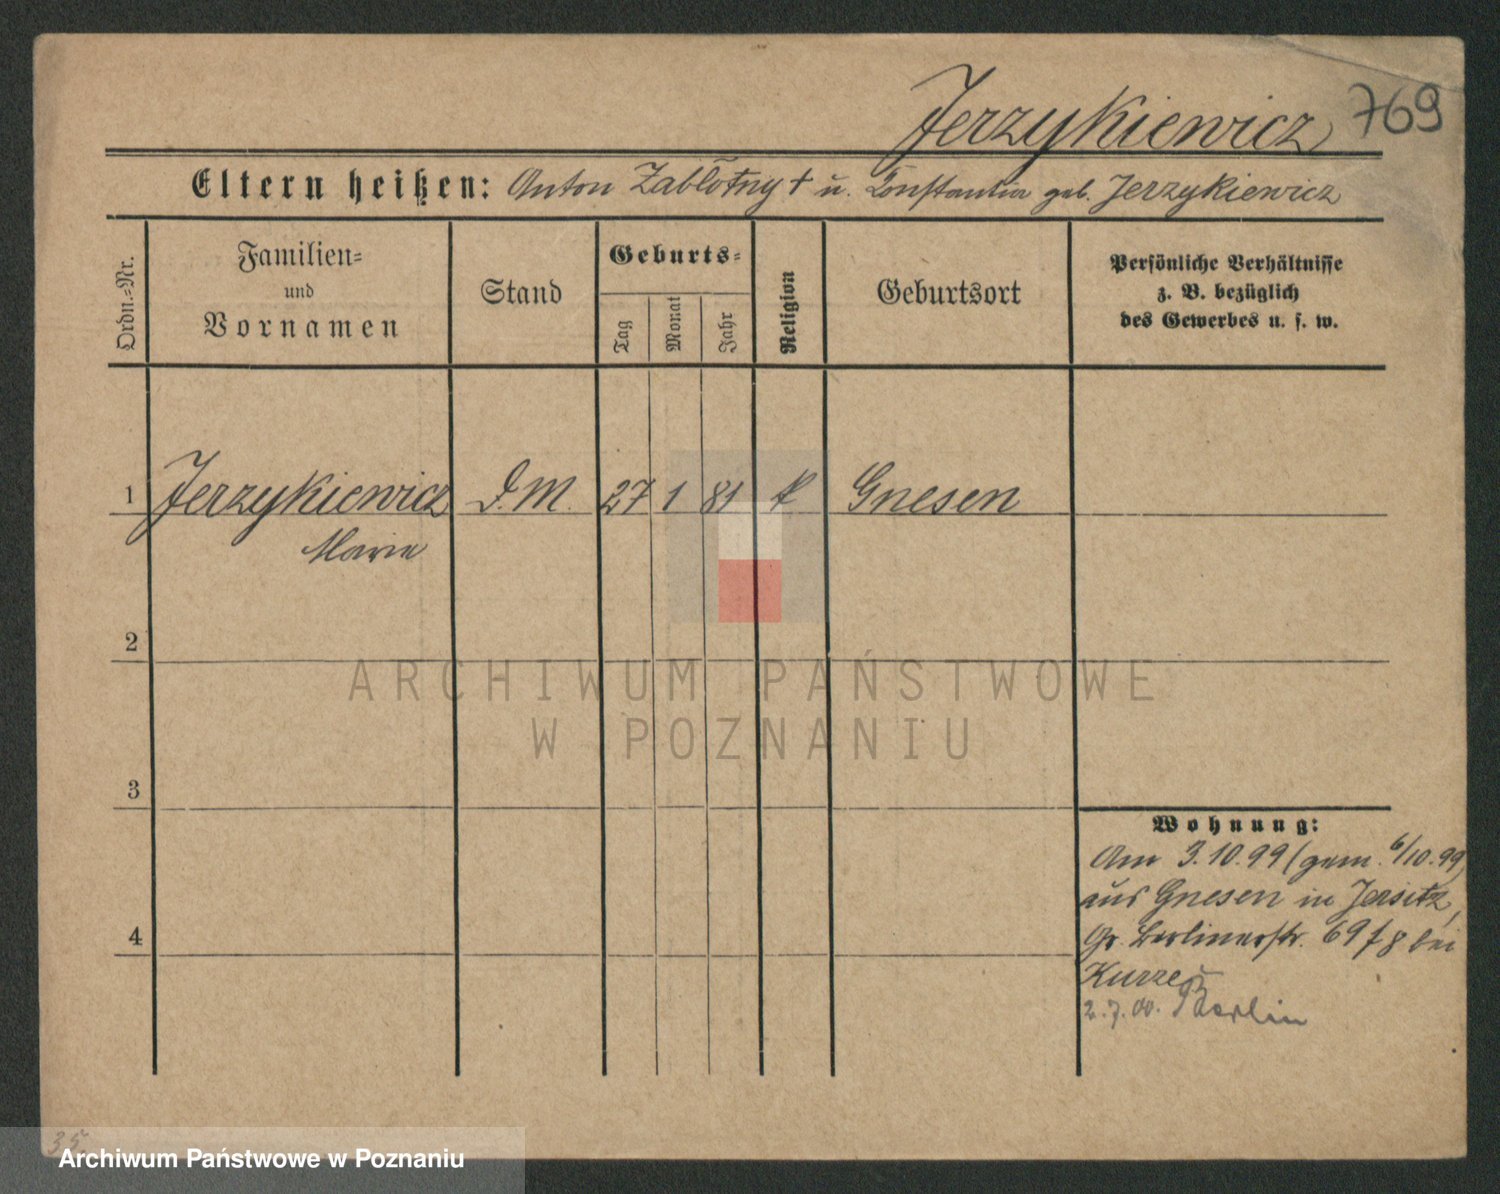 Jerzykiewicz 769
Eltern heißen: Anton Zabłotny † u. Constantia geb. Jerzykiewicz
Ordn.=Nr.
Familien=
und
Vornamen
Stand
Geburts=
Tag
Monat
Jahr
Religion
Geburtsort
Persönliche Verhältnisse
z. B. bezüglich
des Gewerbes u. s. w.
1 Jerzykiewicz D. M. 27 1 81 k Gnesen
Marie
2
ARCHIWUM PAŃSTWOWE
W POZNANIU
3
Wohnung:
Am 3.10.99 (gem. 6/10.99)
aus Gnesen in Jersitz,
Gr. Berlinerstr. 69 f 8 bei
4
Kurzey
2.7.00. Berlin
35.
Archiwum Państwowe w Poznaniu